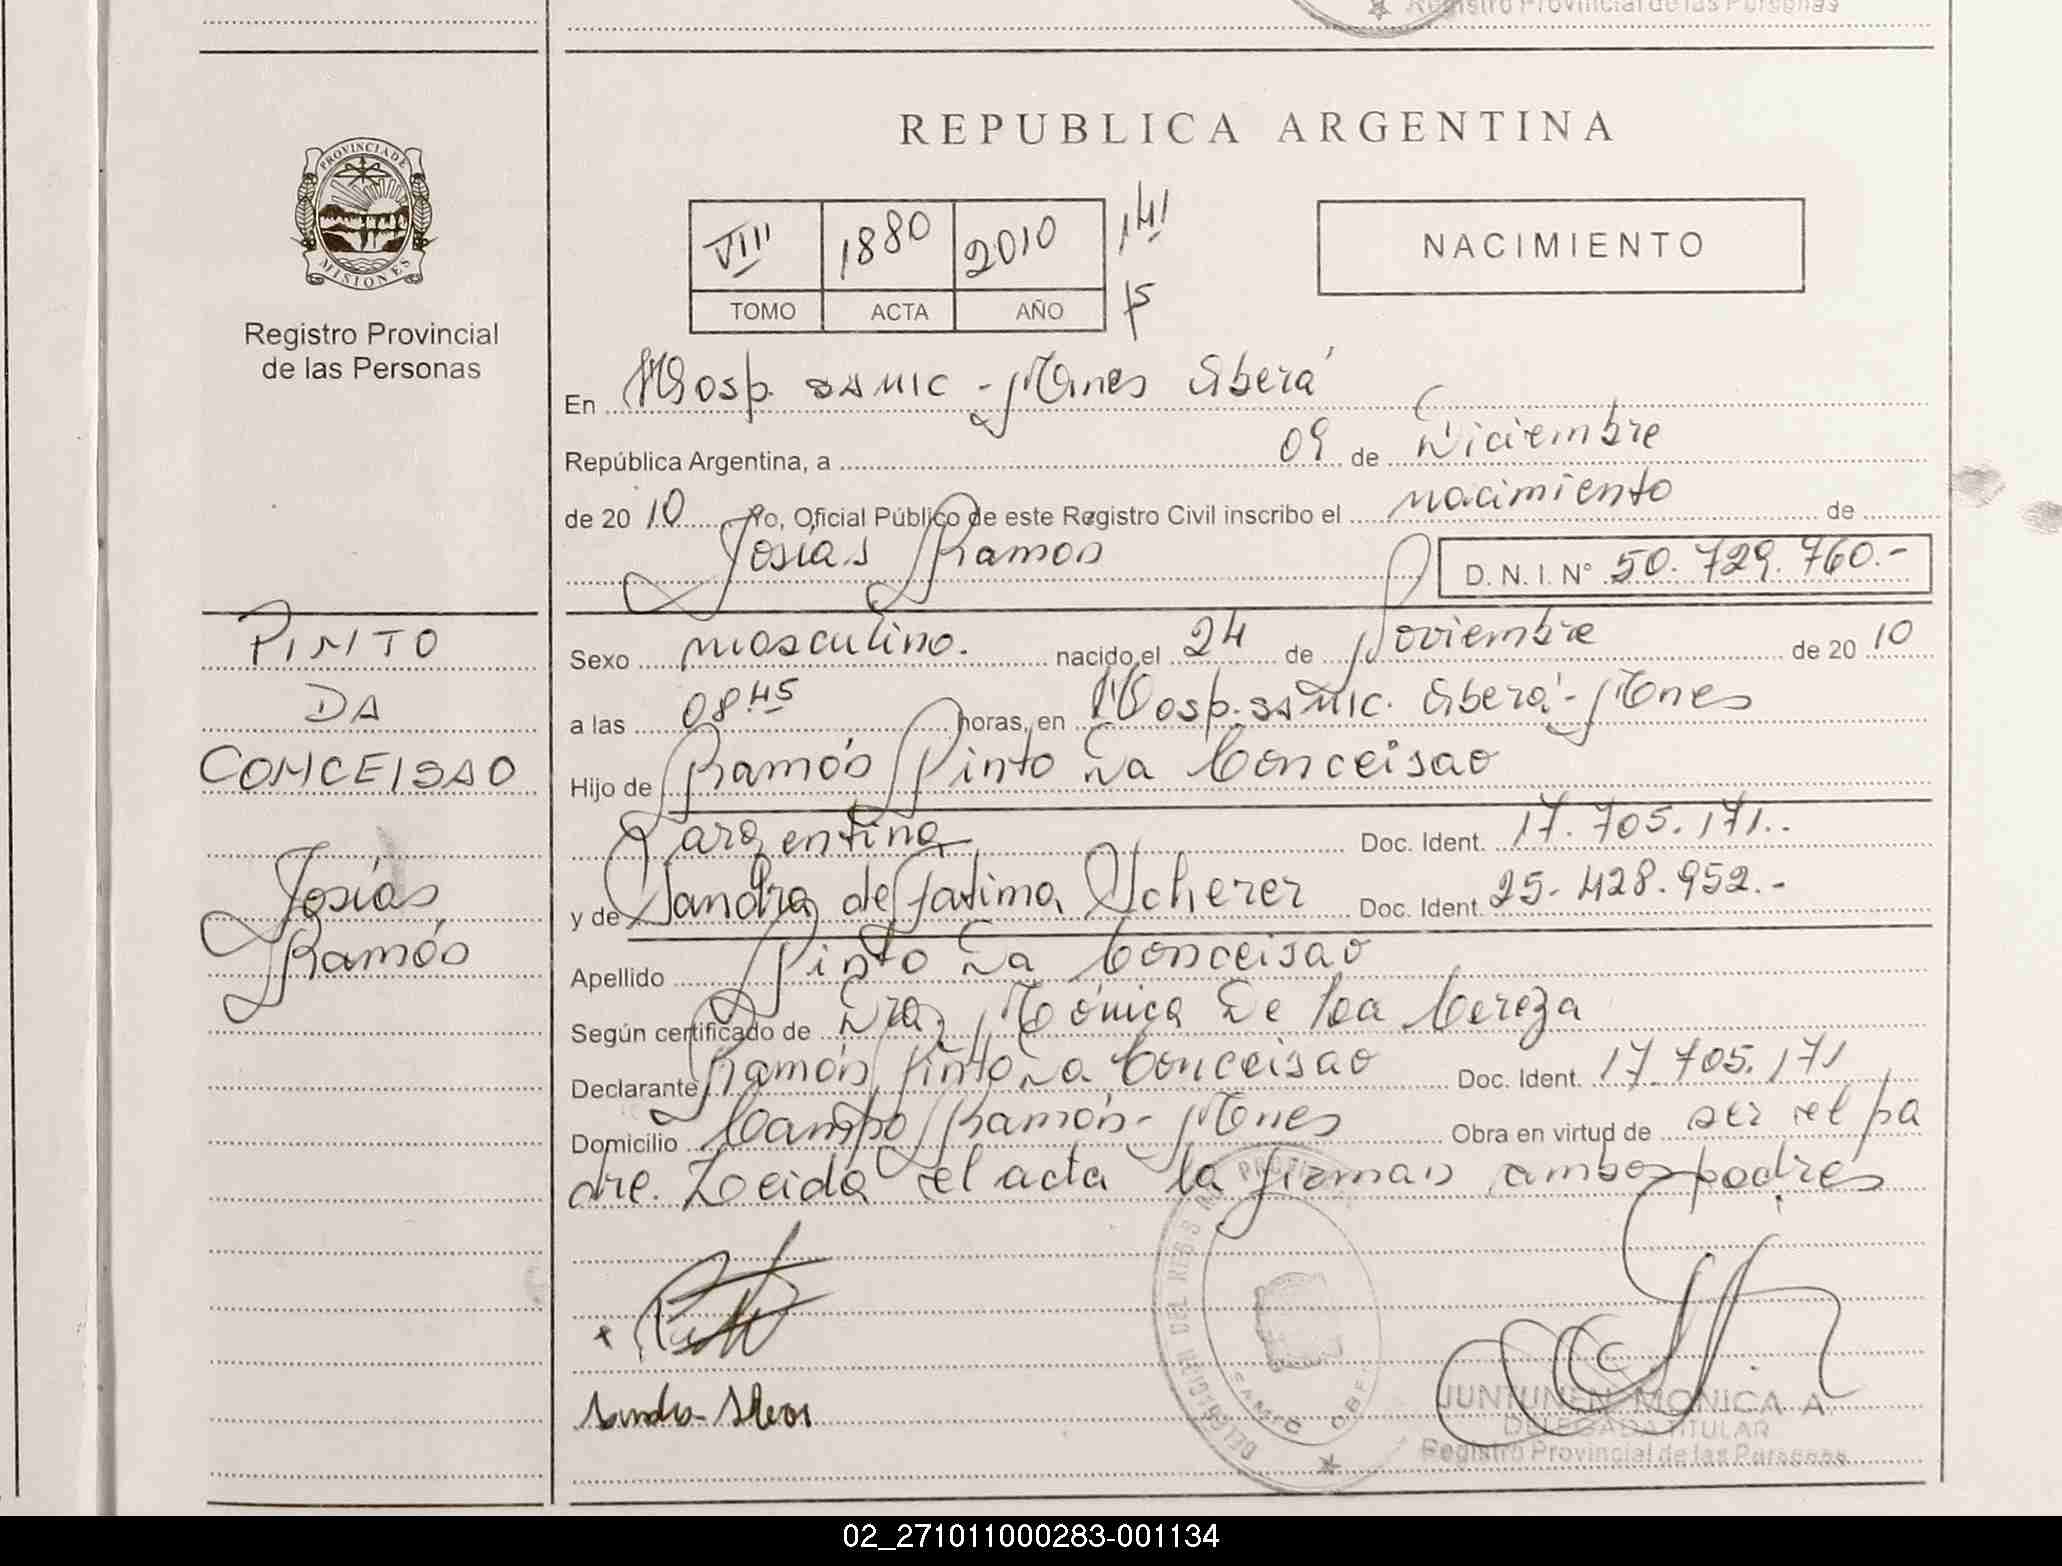 Registro Provincial de las Personas
PROVINCIA DE
MISIONES
Registro Provincial
de las Personas
REPUBLICA ARGENTINA
VIII 1880 2010 141
TOMO ACTA AÑO
NACIMIENTO
En Hosp. SAMIC - Mnes Oberá
República Argentina, a 09 de Diciembre
de 2010 Yo, Oficial Público de este Registro Civil inscribo el nacimiento de
Josías Ramón
D. N. I. Nº 50.729.760.-
PINTO
DA
CONCEISAO
Josías
Ramón
Sexo masculino. nacido el 24 de Noviembre de 2010
a las 08 45 horas, en Hosp. SAMIC. Oberá - Mnes
Hijo de Ramón Pinto Da Conceisao
argentina Doc. Ident. 17.705.171..
y de Sandra de Fatima Scherer Doc. Ident. 25.428.952.-
Apellido Pinto Da Conceisao
Según certificado de Dra. Mónica De La Cereza
Declarante Ramón Pinto Da Conceisao Doc. Ident. 17.705.171
Domicilio Campo Ramón - Mnes Obra en virtud de ser el pa
dre. Leída el acta la firman ambos padres
SAMIC OBE
JUNTUNEN MONICA A
DELEGADA TITULAR
Registro Provincial de las Personas
02_271011000283-001134